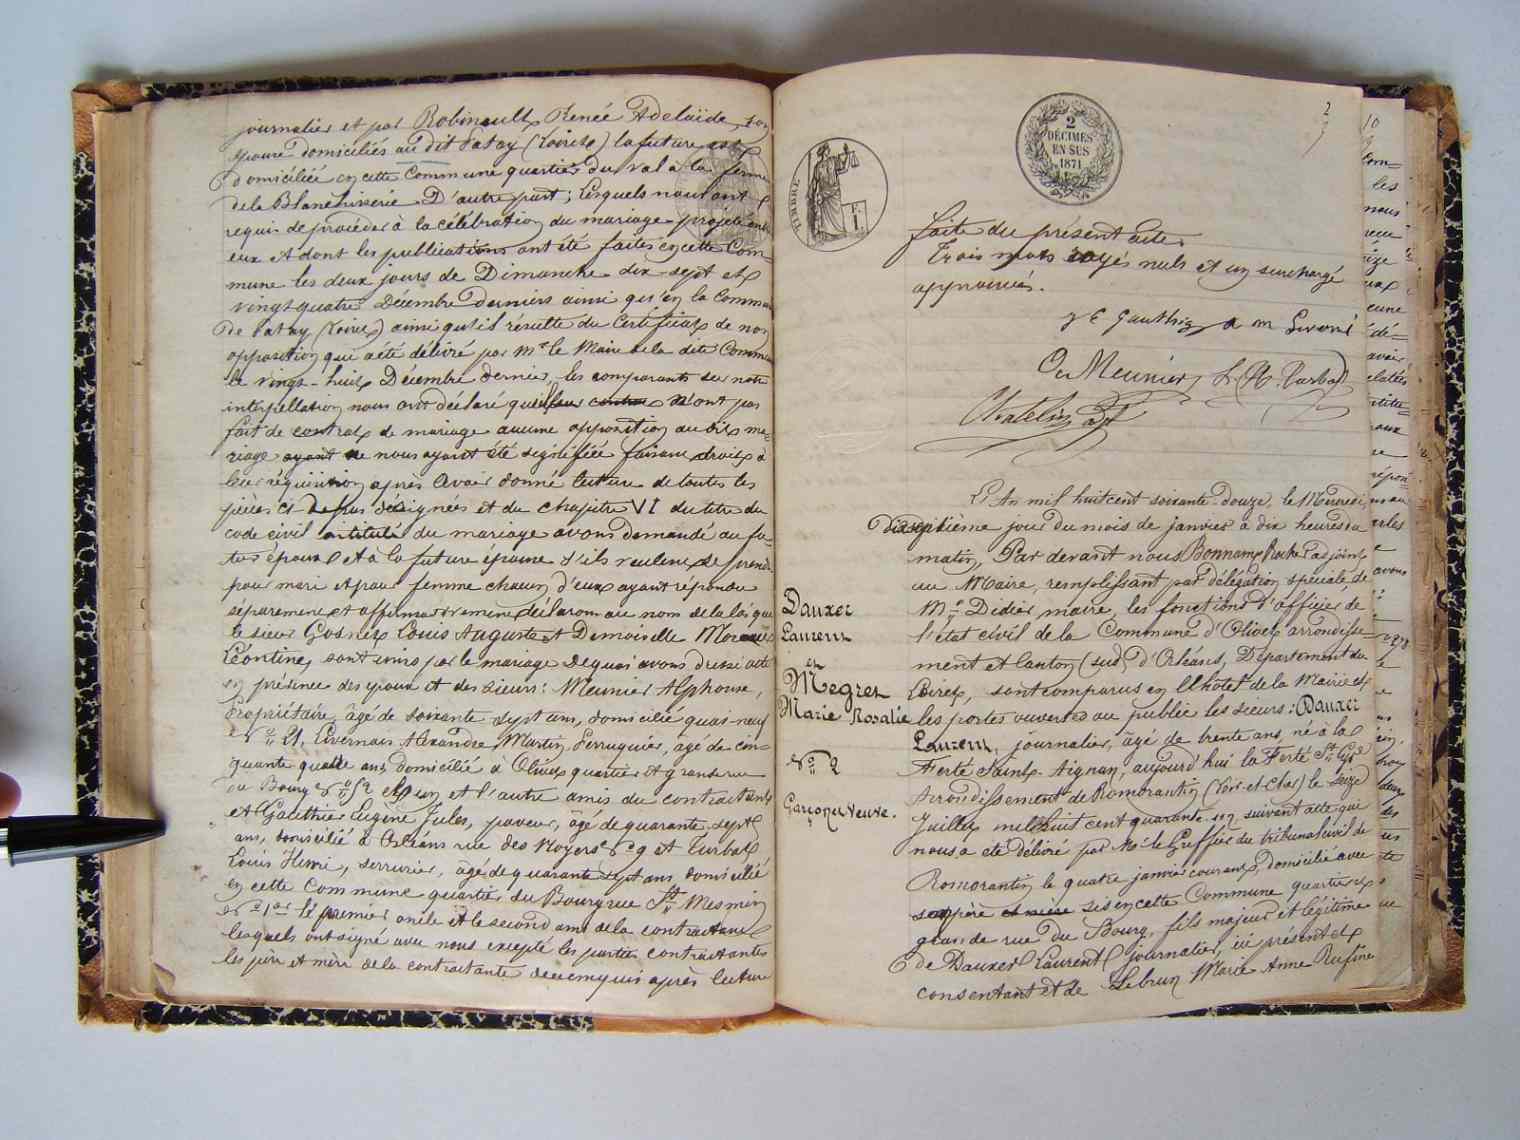 journalier et par Robineault Renée Adelaïde, son
épouse domiciliés au dit Patay (Loiret) la future est
domiciliée en cette Commune quartier du Val à la ferme
de la Blanchisserie D'autre part; Lesquels nous ont
requis de procéder à la célébration du mariage projeté entre
eux et dont les publications ont été faites en cette Com-
mune les deux jours de Dimanche dix sept et
vingt quatre Décembre derniers ainsi qu'en la Commune
de Patay (Loiret) ainsi qu'il résulte du Certificat de non
opposition qui a été délivré par Mr le Maire de la dite Commune
le vingt-huit Décembre dernier, les comparants sur notre
interpellation nous ont déclaré qu'ils n'ont pas
fait de contrat de mariage aucune opposition au dit ma-
riage ayant ne nous ayant été signifiée faisant droit à
leur réquisition après avoir donné lecture de toutes les
pièces ci-dessus désignées et du chapitre VI du titre du
code civil intitulé du mariage avons demandé au fu-
tur époux et à la future épouse s'ils veulent se prendre
pour mari et pour femme chacun d'eux ayant répondu
séparement et affirmativement déclarons au nom de la loi que
le sieur Gosnet Louis Auguste et Demoiselle
Léontine, sont unis par le mariage de quoi avons dressé acte
en présence des époux et des sieurs: Meunier Alphonse,
Propriétaire, âgé de soixante sept ans, domicilié quai-neuf
No 21, Livernais Alexandre Martin, Perruquier, âgé de cin-
quante quatre ans domicilié à Olivet quartier et grande rue
du Bourg No 52 et l'un et l'autre amis du contractant
et Gauthier Eugène Jules, paveur, âgé de quarante-sept
ans, domicilié à Orléans rue des Noyers No 9 et Turbat
Louis Henri, serrurier, âgé de quarante sept ans domicilié
en cette Commune quartier du Bourg rue St Mesmin
No 1er le premier oncle et le second ami de la contractante
lesquels ont signé avec nous excepté les parties contractantes
les père et mère de la contractante de ce enquis après lecture
2
2
DÉCIMES
EN SUS
1871
TIMBRE
F.
1.
faite du présent acte.
Trois mots rayés nuls et un surchargé
approuvés.
J E Gauthier
Meunier
Chatelin
L'An mil huit cent soixante-douze, le Mercredi
Dixseptième jour du mois de janvier à dix heures du
matin, Par devant nous Bonnamy adjoint
au Maire, remplissant par délégation spéciale, de
Mr Didier maire, les fonctions d'officier de
l'état civil de la Commune d'Olivet arrondisse-
ment et Canton (sud) d'Orléans, Département du
Loiret, sont comparus en l'hôtel de la Mairie et
les portes ouvertes au public les sieurs: Dauxer
Laurent, journalier, âgé de trente ans, né à la
Ferté Saint-Aignan, aujourd'hui la Ferté St Cyr
Arrondissement de Romorantin (Loir-et-Cher) le seize
Juillet mil huit cent quarante-un, suivant acte qui
nous a été délivré par Mr le Greffier du tribunal civil de
Romorantin le quatre janvier courant, domicilié avec
ses père et mère sis en cette Commune quartier et
grande rue du Bourg, fils majeur et légitime
de Dauxer Laurent journalier, ici présent et
consentant et de Lebrun Marie Anne Rufine
Dauxer
Laurent
et
Megret
Marie Rosalie
No 2
Garçon et Veuve.